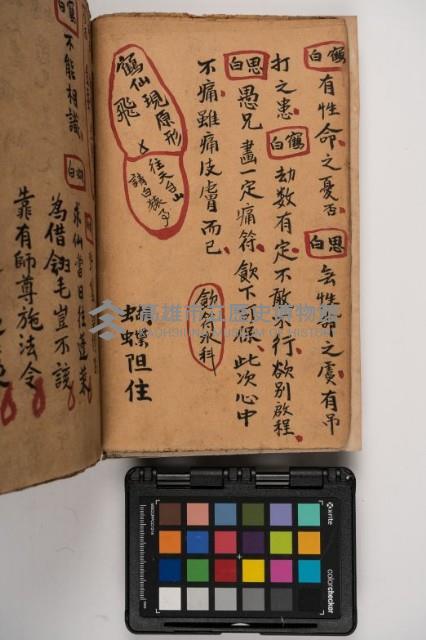 鶴白 有性命之憂否 思白 無性命之虞有吊
打之患 鶴白 劫數有定不敢 行欲別啟程
思白 愚兄畫一定痛符飲下 保此次心中
不痛雖痛皮膚而已 飲符水科
鶴仙現原形飛
往天台山
請白猿
蝴蝶阻住
不能相識 白
求仙當日往蓬萊
為借翎毛豈不該
靠有師尊施法令
高雄市立歷史博物館
KAOHSIUNG MUSEUM OF HISTORY
x-rite
colorchecker